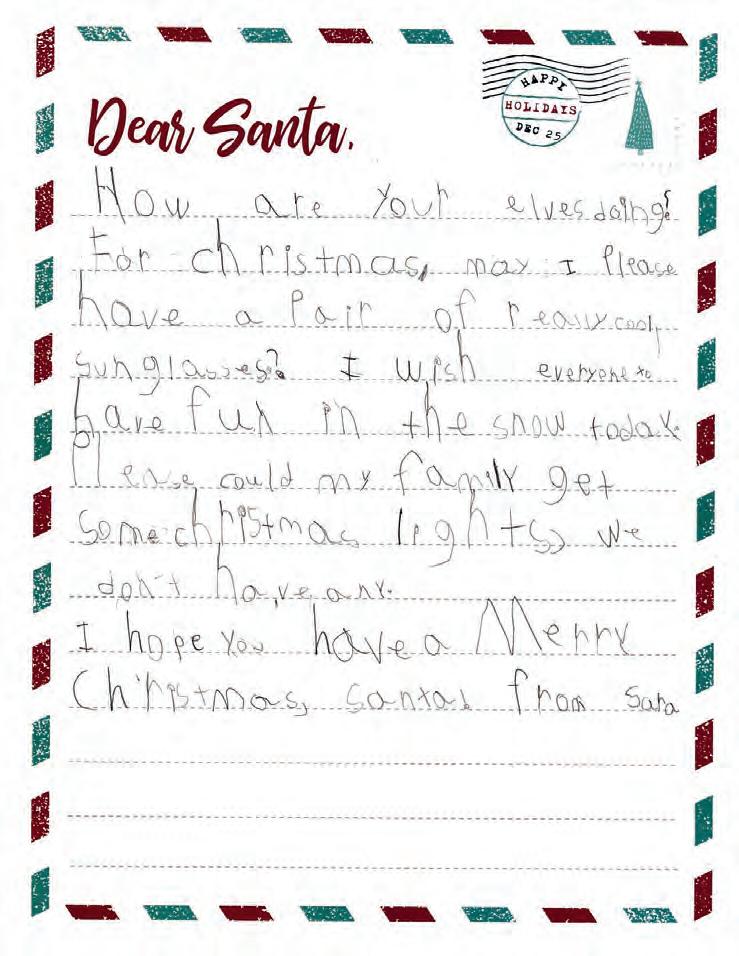 HAPPY
HOLIDAYS
DEC 25
Dear Santa,
How are your elves doing?
For christmas, may I Please
have a Pair of really cool
sunglasses? I wish everyone to
have fun in the snow today.
Please could my family get
some christmas lights, we
don't have any.
I hope you have a Merry
Christmas, santa! from Sara